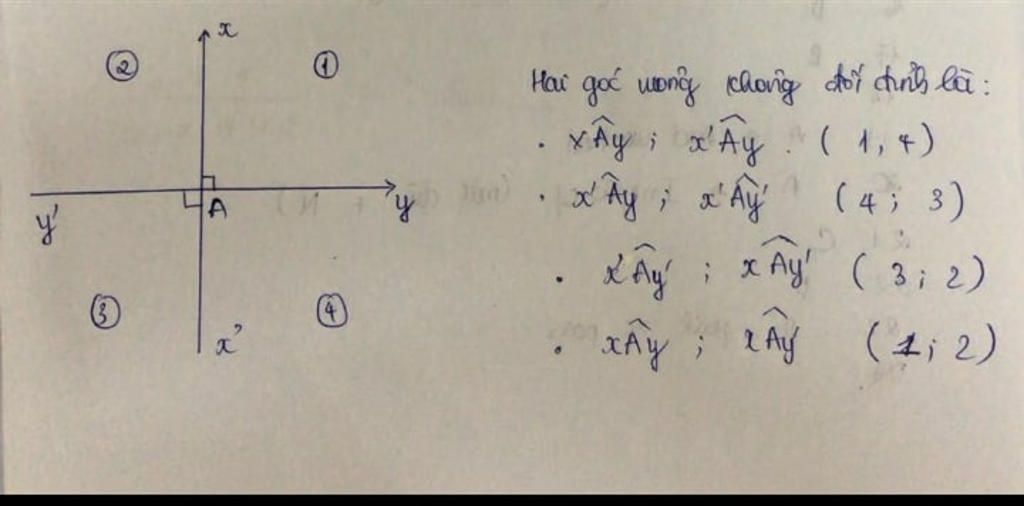 x
② ①
y' A y
③ ④
x'
Hai góc vuông không đối đỉnh là:
. xÂy ; x'Ây . ( 1, 4 )
. x'Ây ; x'Ây' ( 4 ; 3 )
. x'Ây' ; xÂy' ( 3 ; 2 )
. xÂy ; xÂy' ( 1 ; 2 )